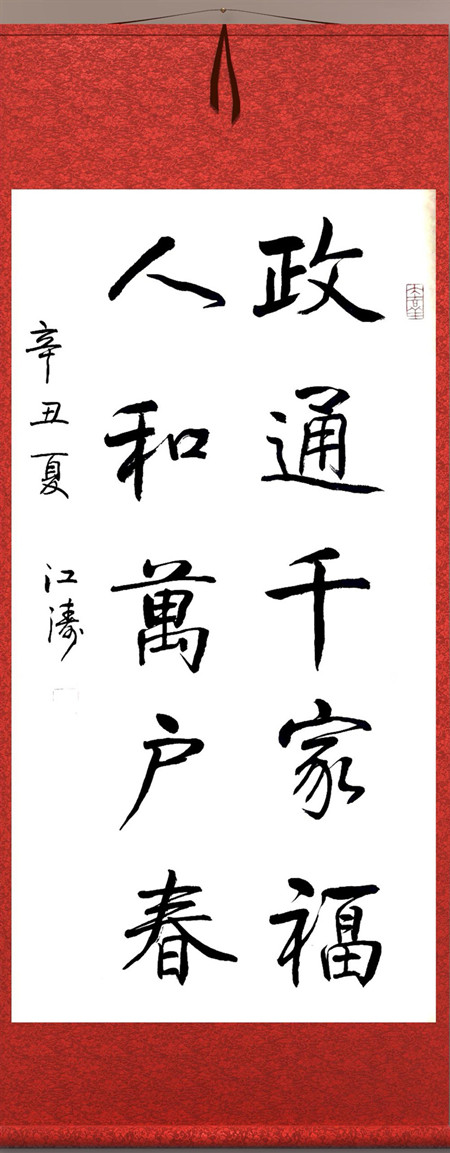 政通千家福
人和萬户春
辛丑夏 江濤